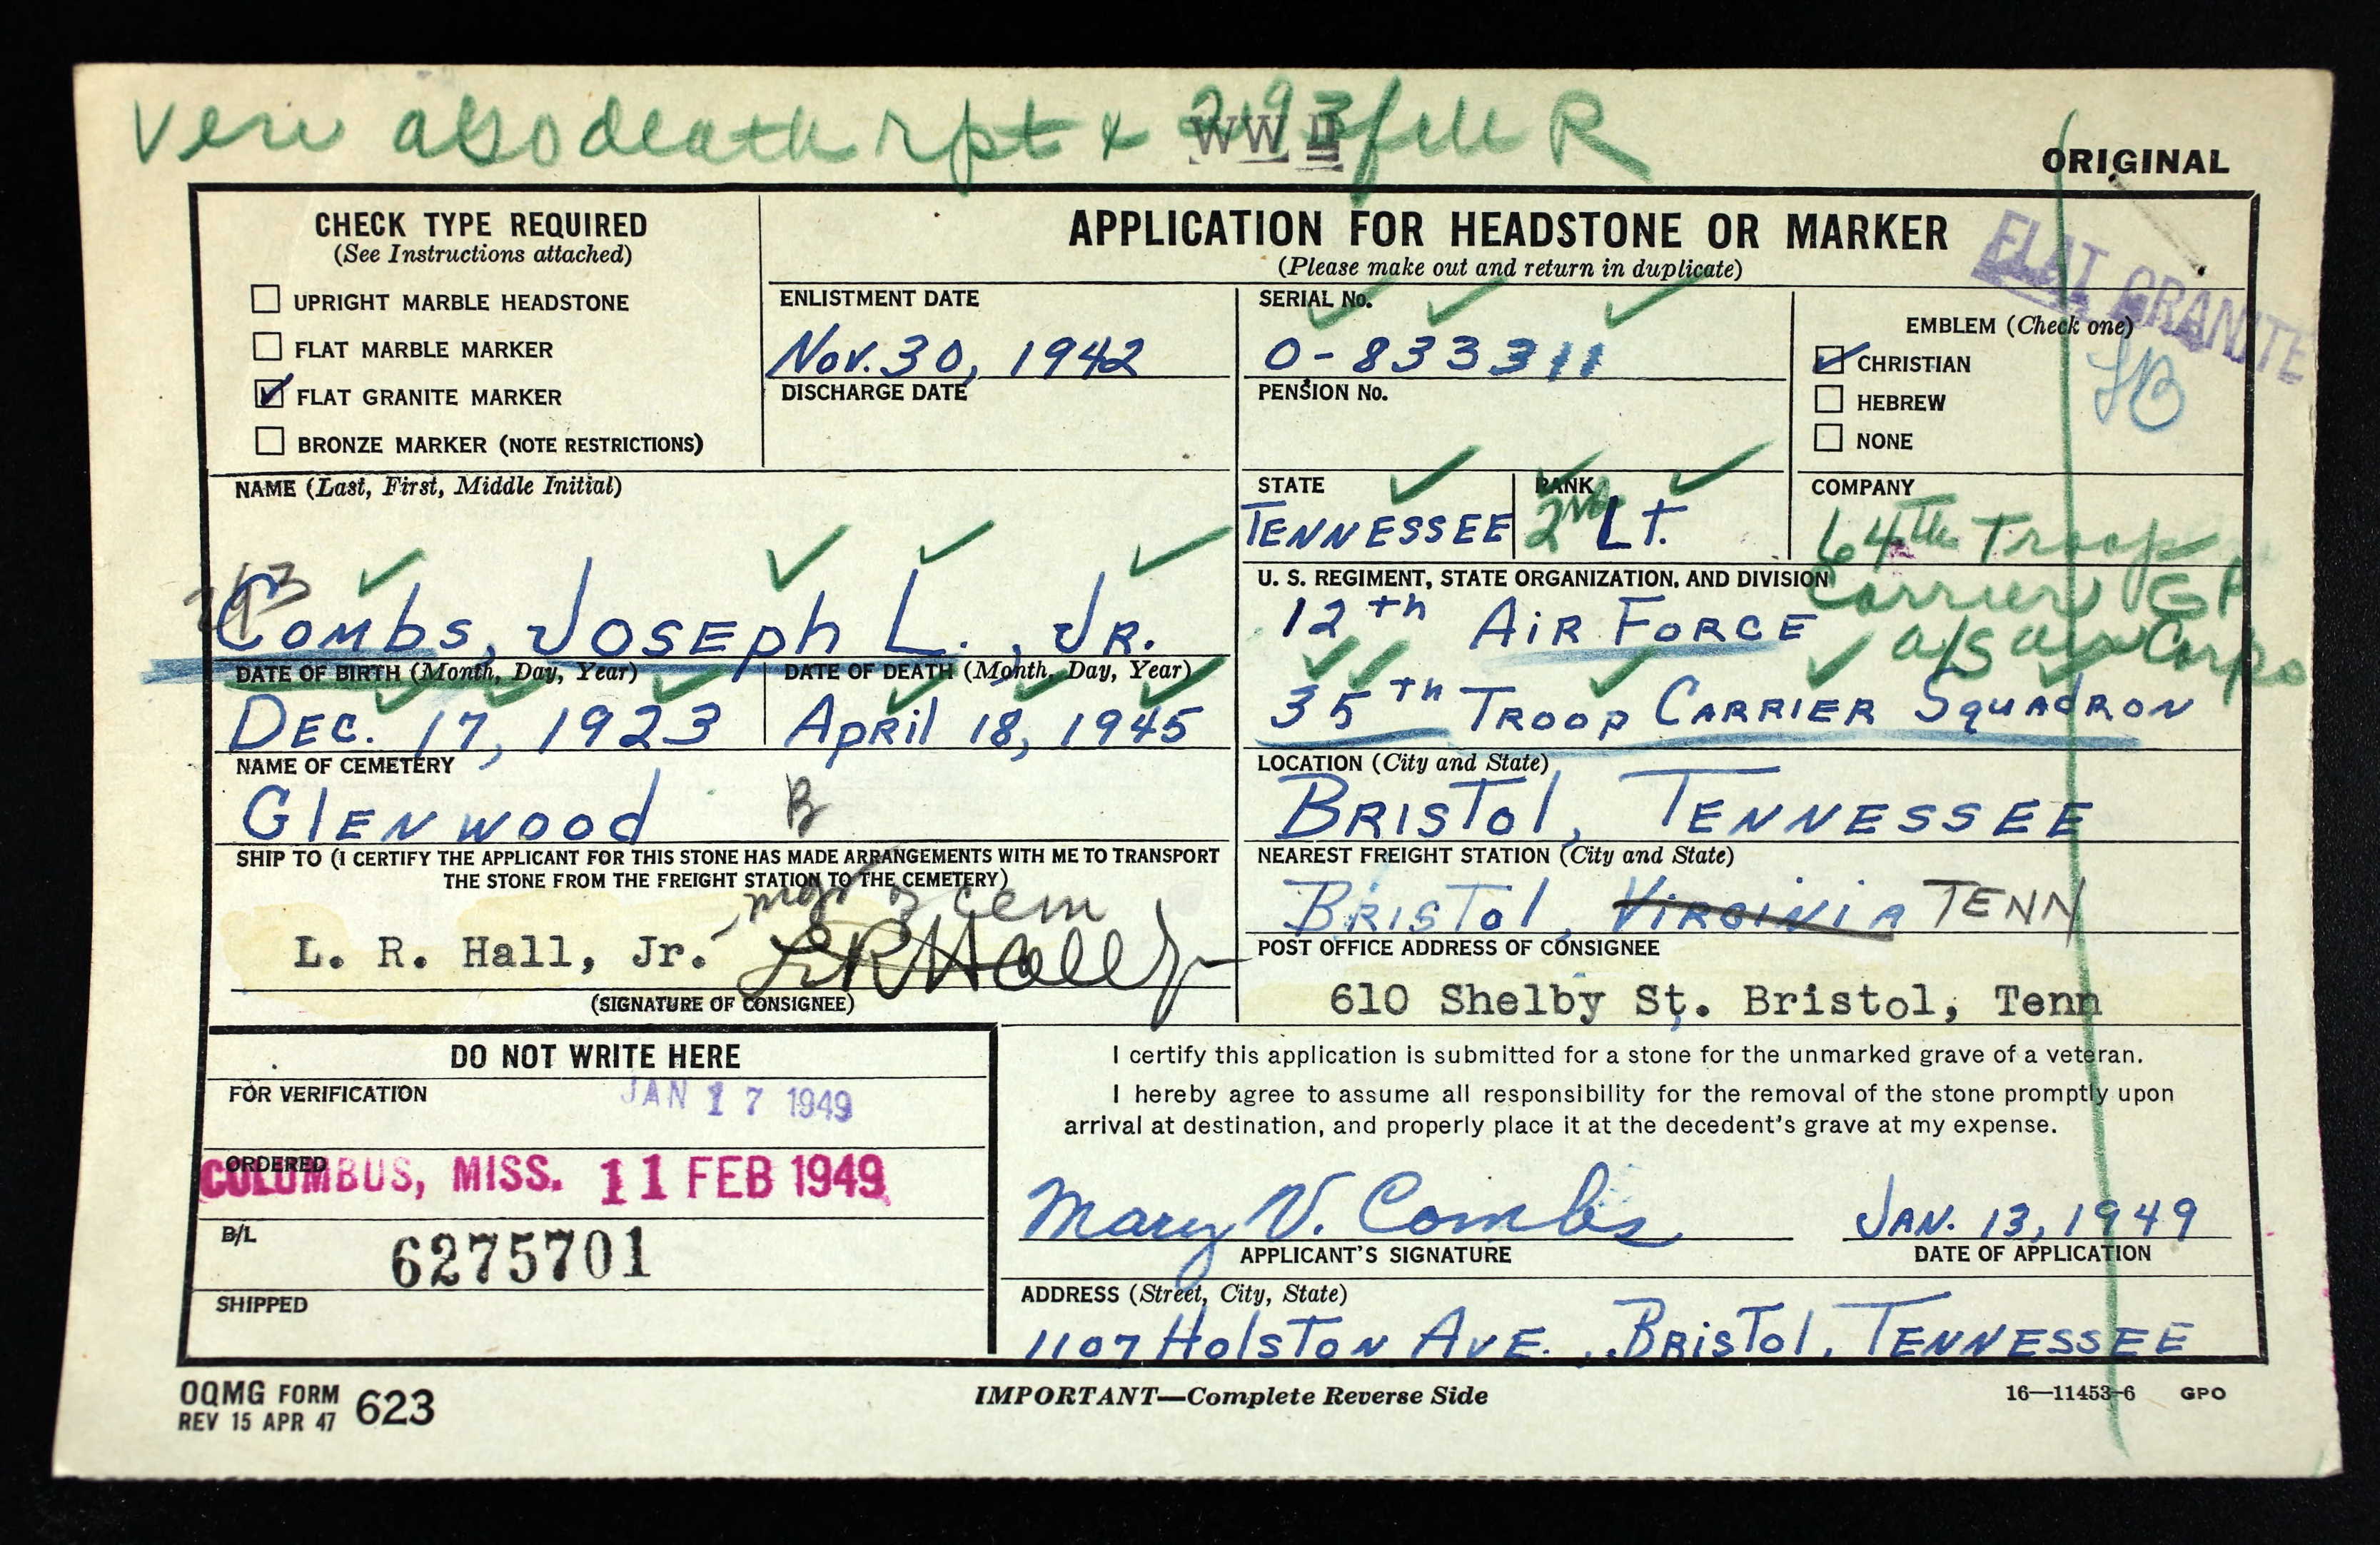 Veri also death rpt & 293 file R
WW II
ORIGINAL
CHECK TYPE REQUIRED
(See Instructions attached)
UPRIGHT MARBLE HEADSTONE
FLAT MARBLE MARKER
FLAT GRANITE MARKER
BRONZE MARKER (NOTE RESTRICTIONS)
APPLICATION FOR HEADSTONE OR MARKER
(Please make out and return in duplicate)
FLAT GRANITE
ENLISTMENT DATE
Nov. 30, 1942
DISCHARGE DATE
SERIAL No.
O-833311
PENSION No.
EMBLEM (Check one)
CHRISTIAN
HEBREW
NONE
NAME (Last, First, Middle Initial)
293
Combs, Joseph L., Jr.
STATE
TENNESSEE
RANK
2nd Lt.
COMPANY
64th Troop
Carrier Gp
a/s air Corps
U. S. REGIMENT, STATE ORGANIZATION, AND DIVISION
12th AiR FORCE
35th TROOp CARRIER SquADRON
DATE OF BIRTH (Month, Day, Year)
DEC. 17, 1923
DATE OF DEATH (Month, Day, Year)
April 18, 1945
NAME OF CEMETERY
GlENwood B
LOCATION (City and State)
BRISTol, TENNESSEE
SHIP TO (I CERTIFY THE APPLICANT FOR THIS STONE HAS MADE ARRANGEMENTS WITH ME TO TRANSPORT
THE STONE FROM THE FREIGHT STATION TO THE CEMETERY)
mgr of cem
L. R. Hall, Jr. L R Hall Jr
(SIGNATURE OF CONSIGNEE)
NEAREST FREIGHT STATION (City and State)
BRISTol, VIRGINIA TENN
POST OFFICE ADDRESS OF CONSIGNEE
610 Shelby St. Bristol, Tenn
DO NOT WRITE HERE
FOR VERIFICATION
JAN 17 1949
ORDERED
COLUMBUS, MISS. 11 FEB 1949
B/L
6275701
SHIPPED
I certify this application is submitted for a stone for the unmarked grave of a veteran.
I hereby agree to assume all responsibility for the removal of the stone promptly upon
arrival at destination, and properly place it at the decedent's grave at my expense.
Mary V. Combs
APPLICANT'S SIGNATURE
JAN. 13, 1949
DATE OF APPLICATION
ADDRESS (Street, City, State)
1107 HolSTON AVE. BRiSTol, TENNESSEE
OQMG FORM 623
REV 15 APR 47
IMPORTANT—Complete Reverse Side
16—11453-6 GPO